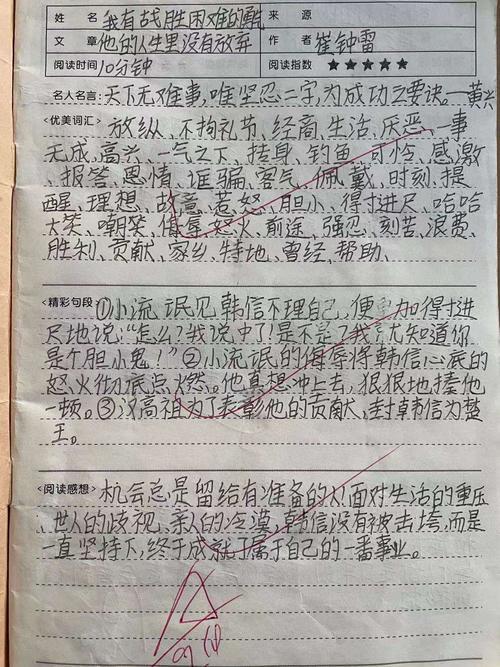 姓 名 我有战胜困难的勇 来 源
文 章 他的人生里没有放弃 作 者 崔钟雷
阅读时间 10分钟 阅读指数 ★★★★★
名人名言: 天下无难事,唯坚忍二字,为成功之要诀。—黄兴
<优美词汇> 放纵、不拘礼节、经商、生活、厌恶、一事
无成、高兴、一气之下、转身、钓鱼、可怜、感激
、报答、恩情、诓骗、客气、佩戴、时刻、提
醒、理想、故意、惹怒、胆小、得寸进尺、哈哈
大笑、嘲笑、侮辱、怒火、前途、强忍、刻苦、浪费、
胜利、贡献、家乡、特地、曾经、帮助、
<精彩句段> ①小流氓见韩信不理自己,便更加得寸进
尺地说:“怎么?我说中了!是不是?我就知道你
是个胆小鬼!”②小流氓的侮辱将韩信心底的
怒火彻底点燃。他真想冲上去,狠狠地揍他
一顿。③汉高祖为了表彰他的贡献,封韩信为楚
王。
<阅读感想> 机会总是留给有准备的人面对生活的重压
、世人的歧视、亲人的冷漠,韩信没有被击垮,而是
一直坚持下,终于成就了属于自己的一番事业。